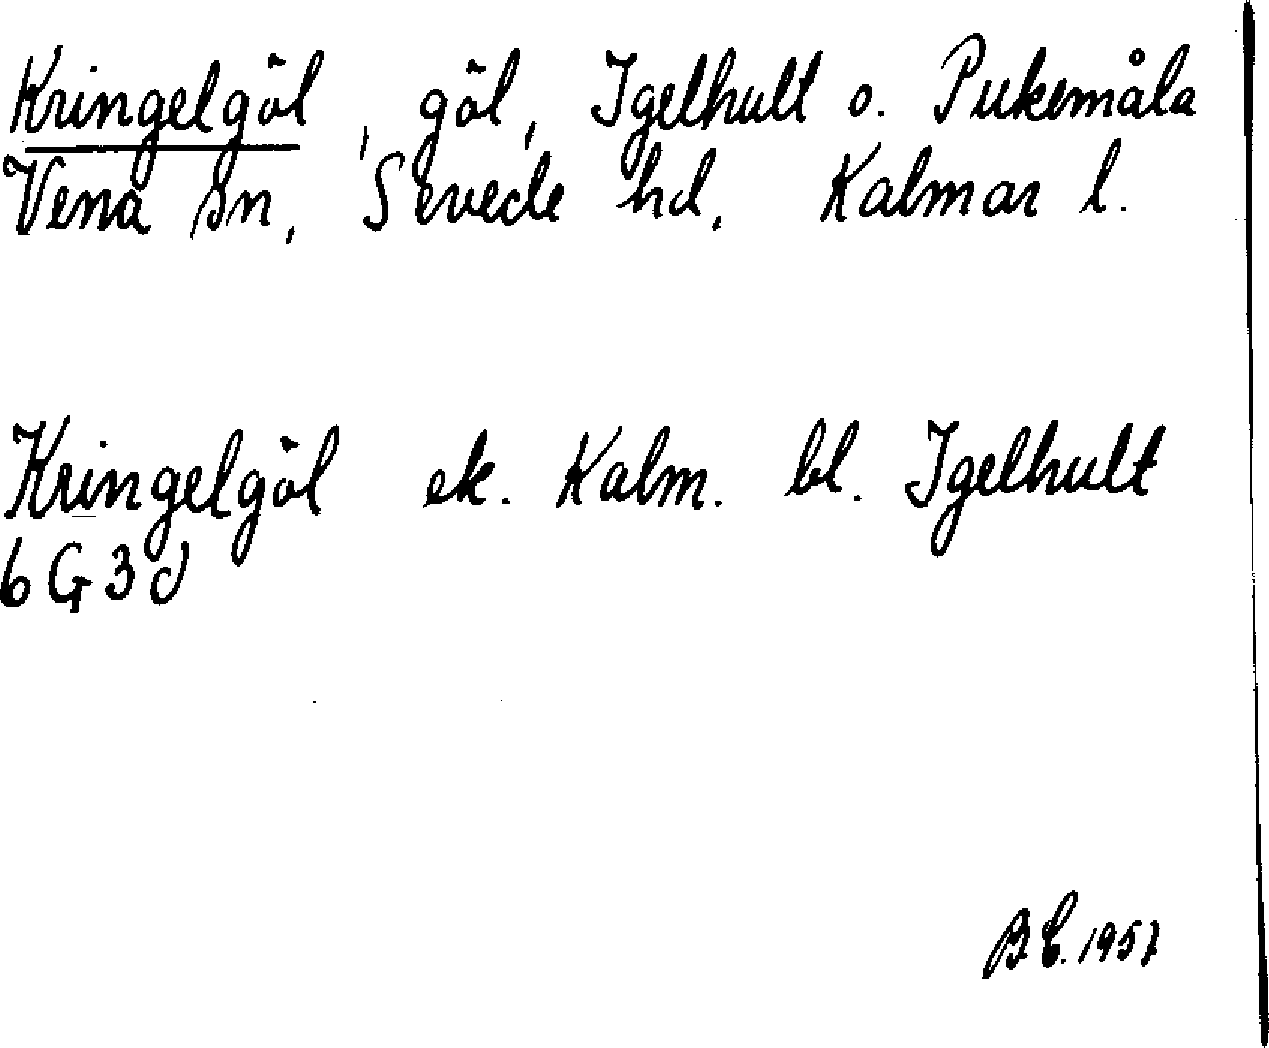 Kringelgöl, göl, Igelhult o. Pukemåla
Vena sn, Sevede hd, Kalmar l.
Kringelgöl ek. Kalm. bl. Igelhult
6 G 3 d
B E. 1957